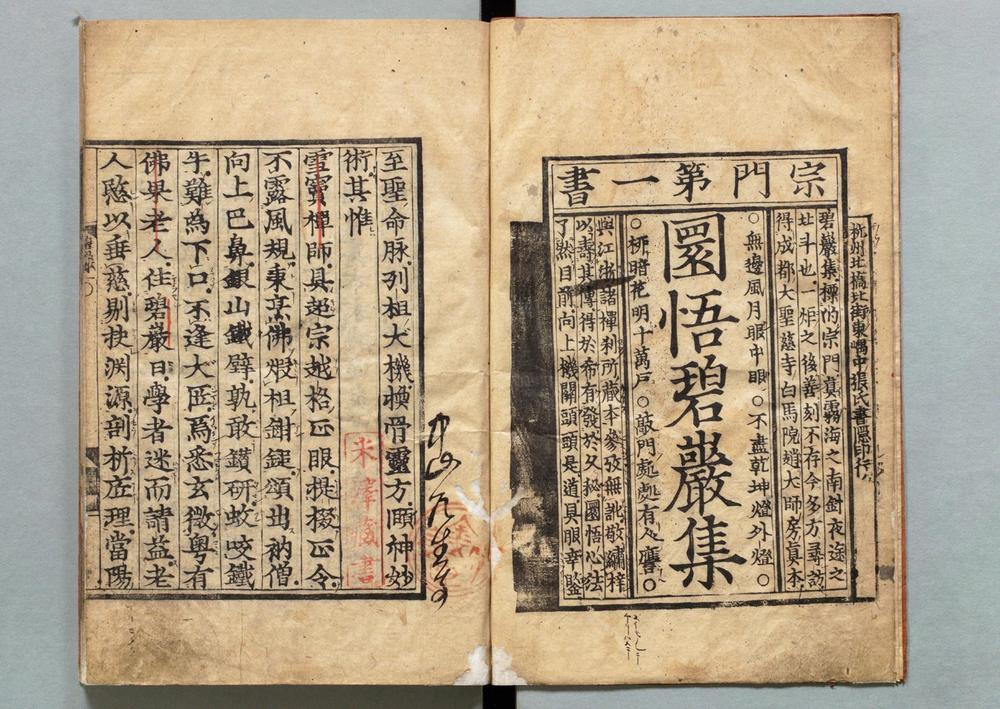 杭州北橋北街東嵎中張氏書隱印行
宗門第一書
碧巖集標的宗門眞霧海之南針夜途之
北斗也一炬之後善刻不存今多方尋訪
得成都大聖慈寺白馬院趙大師房眞本
○無邊風月眼中眼○不盡乾坤燈外燈○
圜悟碧巖集
○栁暗花明十萬戶○敲門處處有人應○
與江浙諸禪刹所藏本參攷無訛敬繡梓
以壽其傳得於希有發於久秘圜悟心法
了然目前向上機關頭頭是道具眼幸鑒
至聖命脉.列祖大機.換骨靈方.頤神玅
術.其惟
雪竇禪師.具超宗越格正眼.提掇正令.
不露風規.秉烹佛煅祖鉗鎚.頌出衲僧
向上巴鼻.銀山鐵壁.孰敢鑽研.蚊咬鐵
牛.難爲下口.不逢大匠.焉悉玄微.粤有
佛果老人.住碧巖日.學者迷而請益.老
人愍以垂慈.剔抉淵源.剖析底理.當陽
米澤藏書